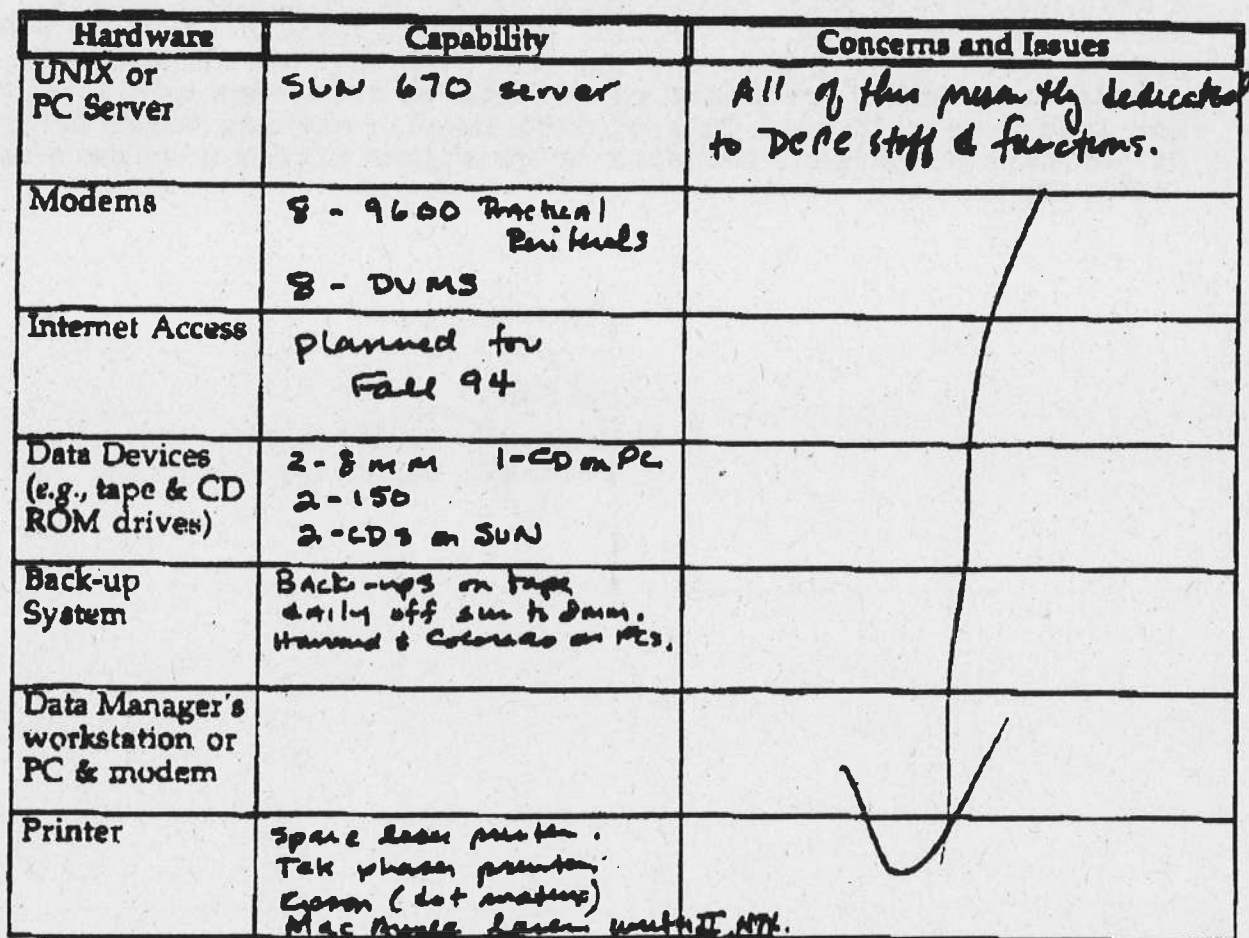 Hardware
Capability
Concerns and Issues
UNIX or
PC Server
SUN 670 server
All of this presently dedicated
to DCPC staff & functions.
Modems
8 - 9600 Practical
8 - DVMS
Internet Access
planned for
Fall 94
Data Devices
(e.g., tape & CD
ROM drives)
2 - 8 mm 1 - CD on PC
2 - 150
2 - CDs on SUN
Back-up
System
Back-ups on tape
daily off sun to 8mm.
& Colorado on PCs.
Data Manager's
workstation or
PC & modem
Printer
Spare laser printer.
Tek phaser printer
Epson (dot matrix)
Mac Laser II NTX.